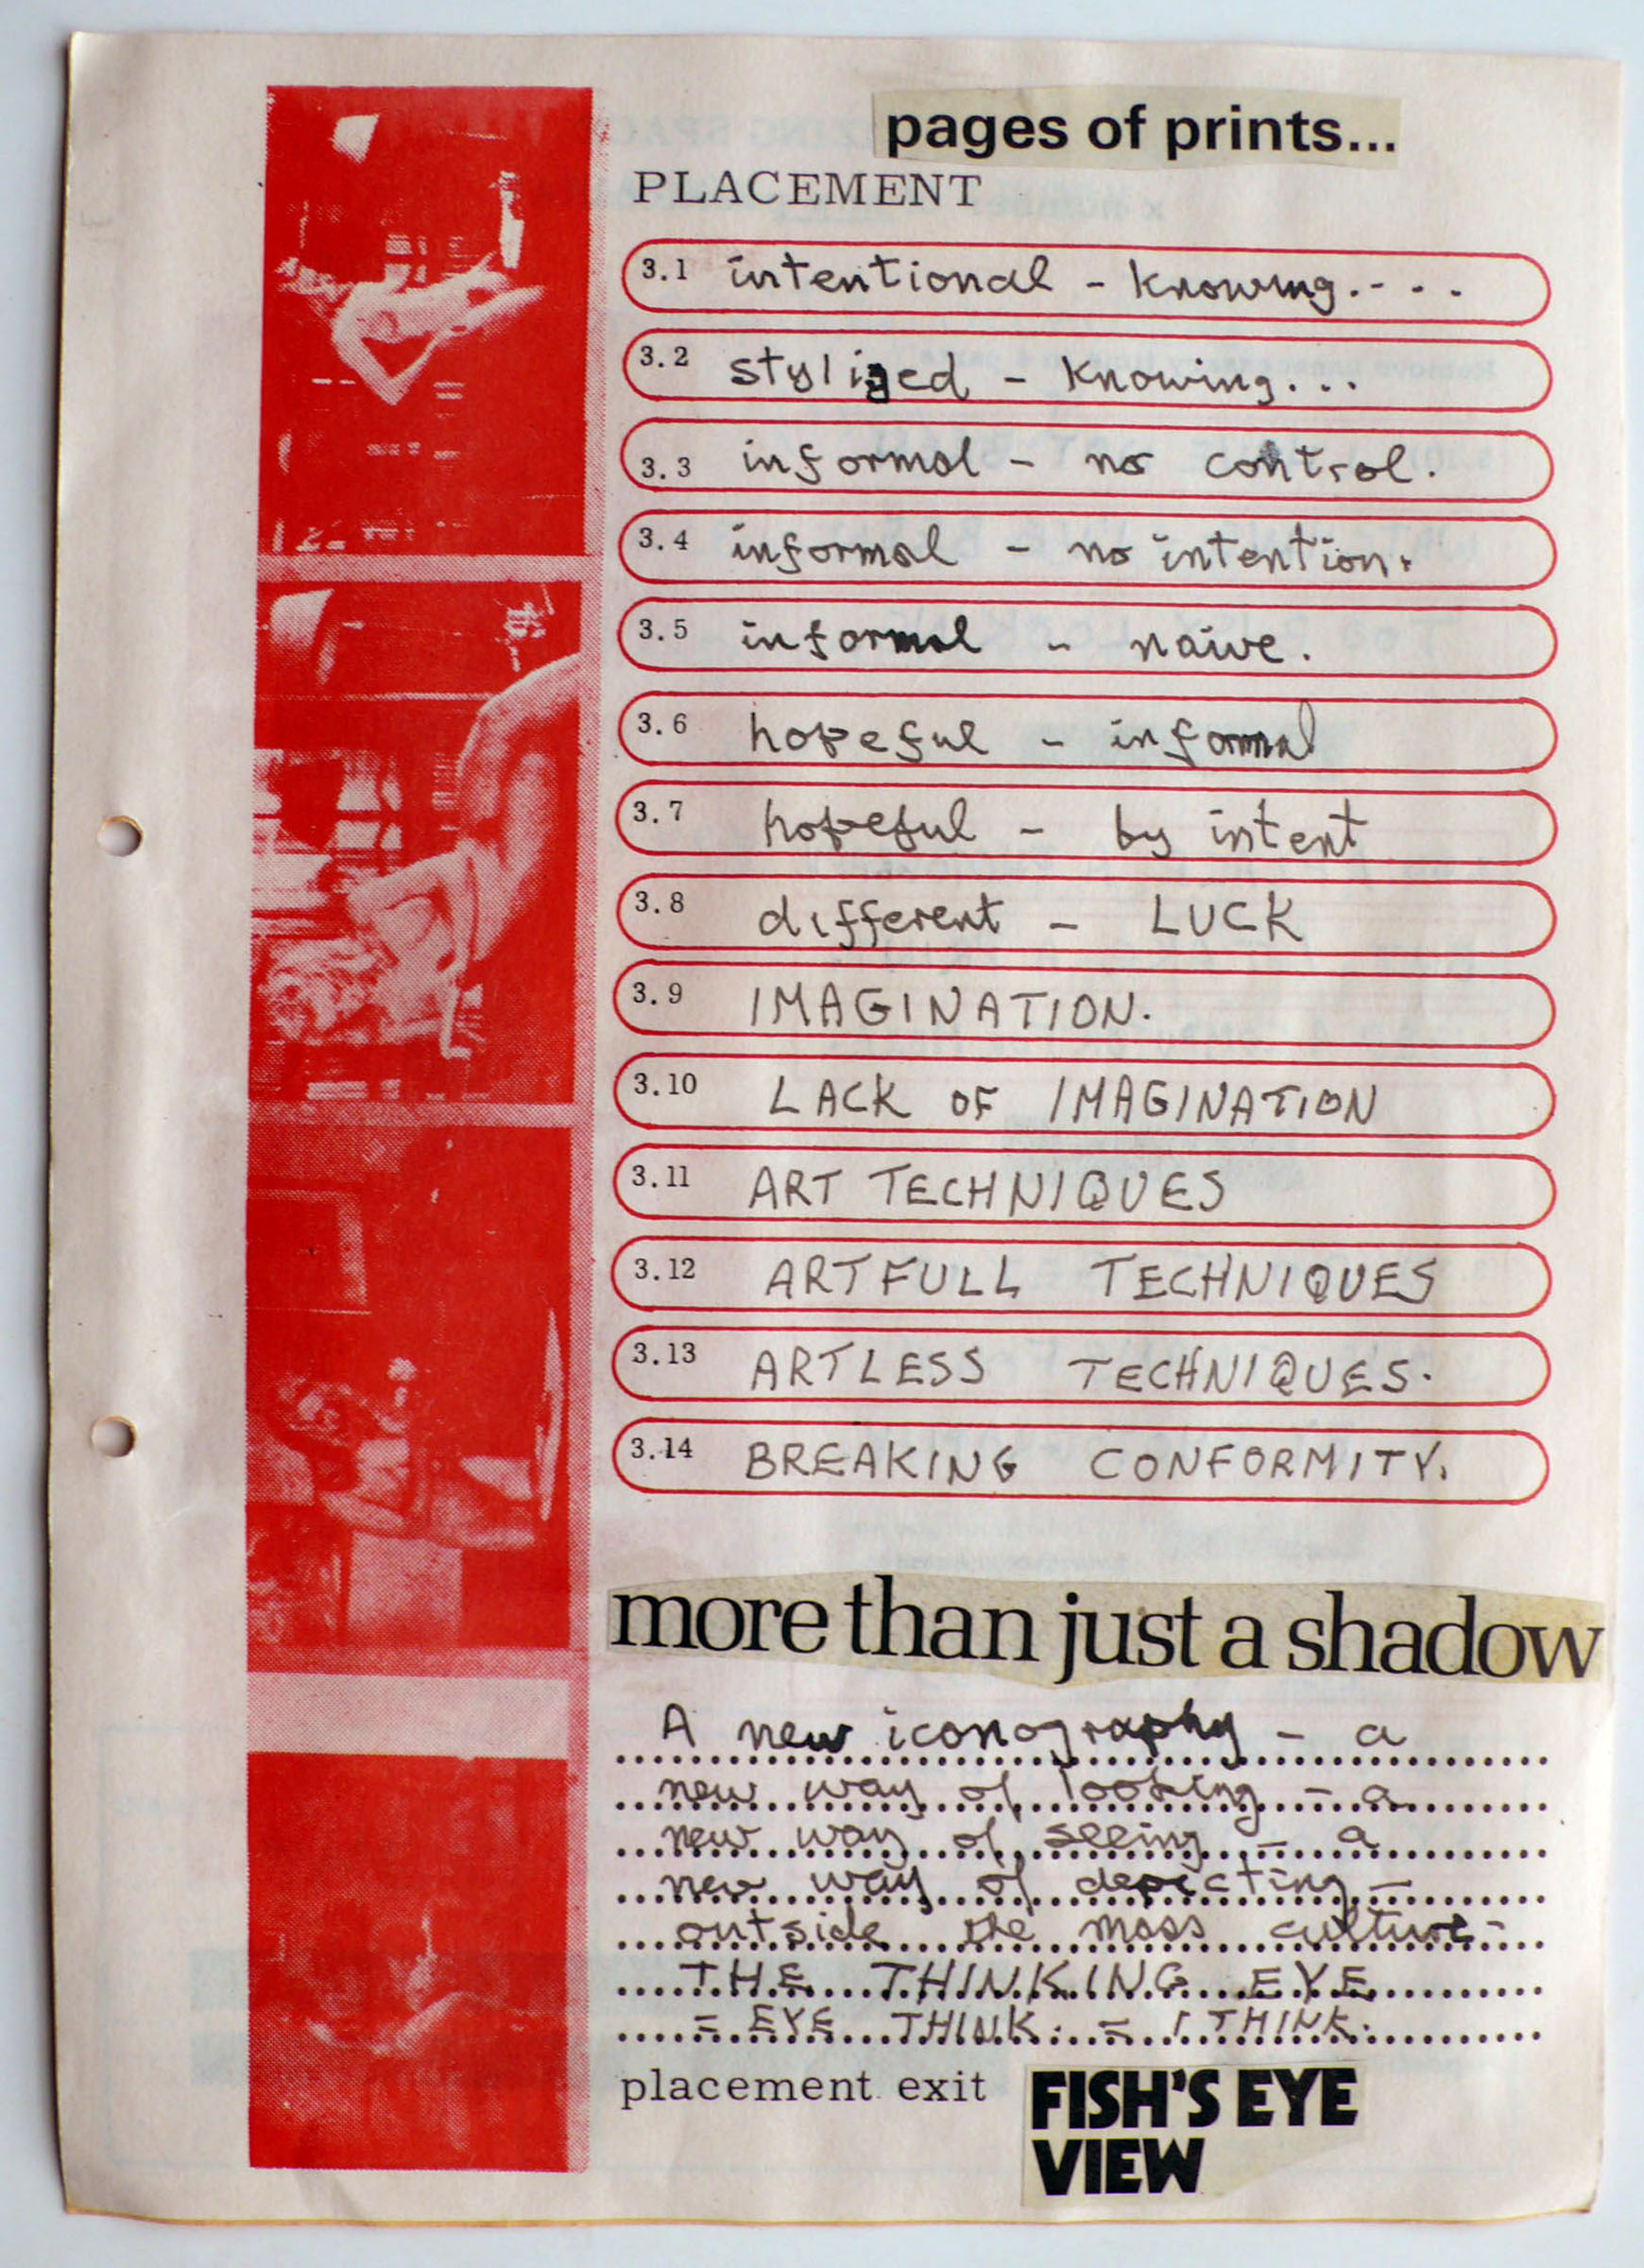 pages of prints...
PLACEMENT
3.1 intentional - knowing. - - .
3.2 stylized - knowing...
3.3 informal - no control.
3.4 informal - no intention.
3.5 informal - naive.
3.6 hopeful - informal
3.7 hopeful - by intent
3.8 different - LUCK
3.9 IMAGINATION.
3.10 LACK OF IMAGINATION
3.11 ART TECHNIQUES
3.12 ARTFULL TECHNIQUES
3.13 ARTLESS TECHNIQUES.
3.14 BREAKING CONFORMITY.
more than just a shadow
A new iconography - a
new way of looking - a
new way of seeing - a
new way of depicting -
outside the mass culture -
THE THINKING EYE
= EYE THINK. = I THINK.
placement exit
FISH'S EYE
VIEW